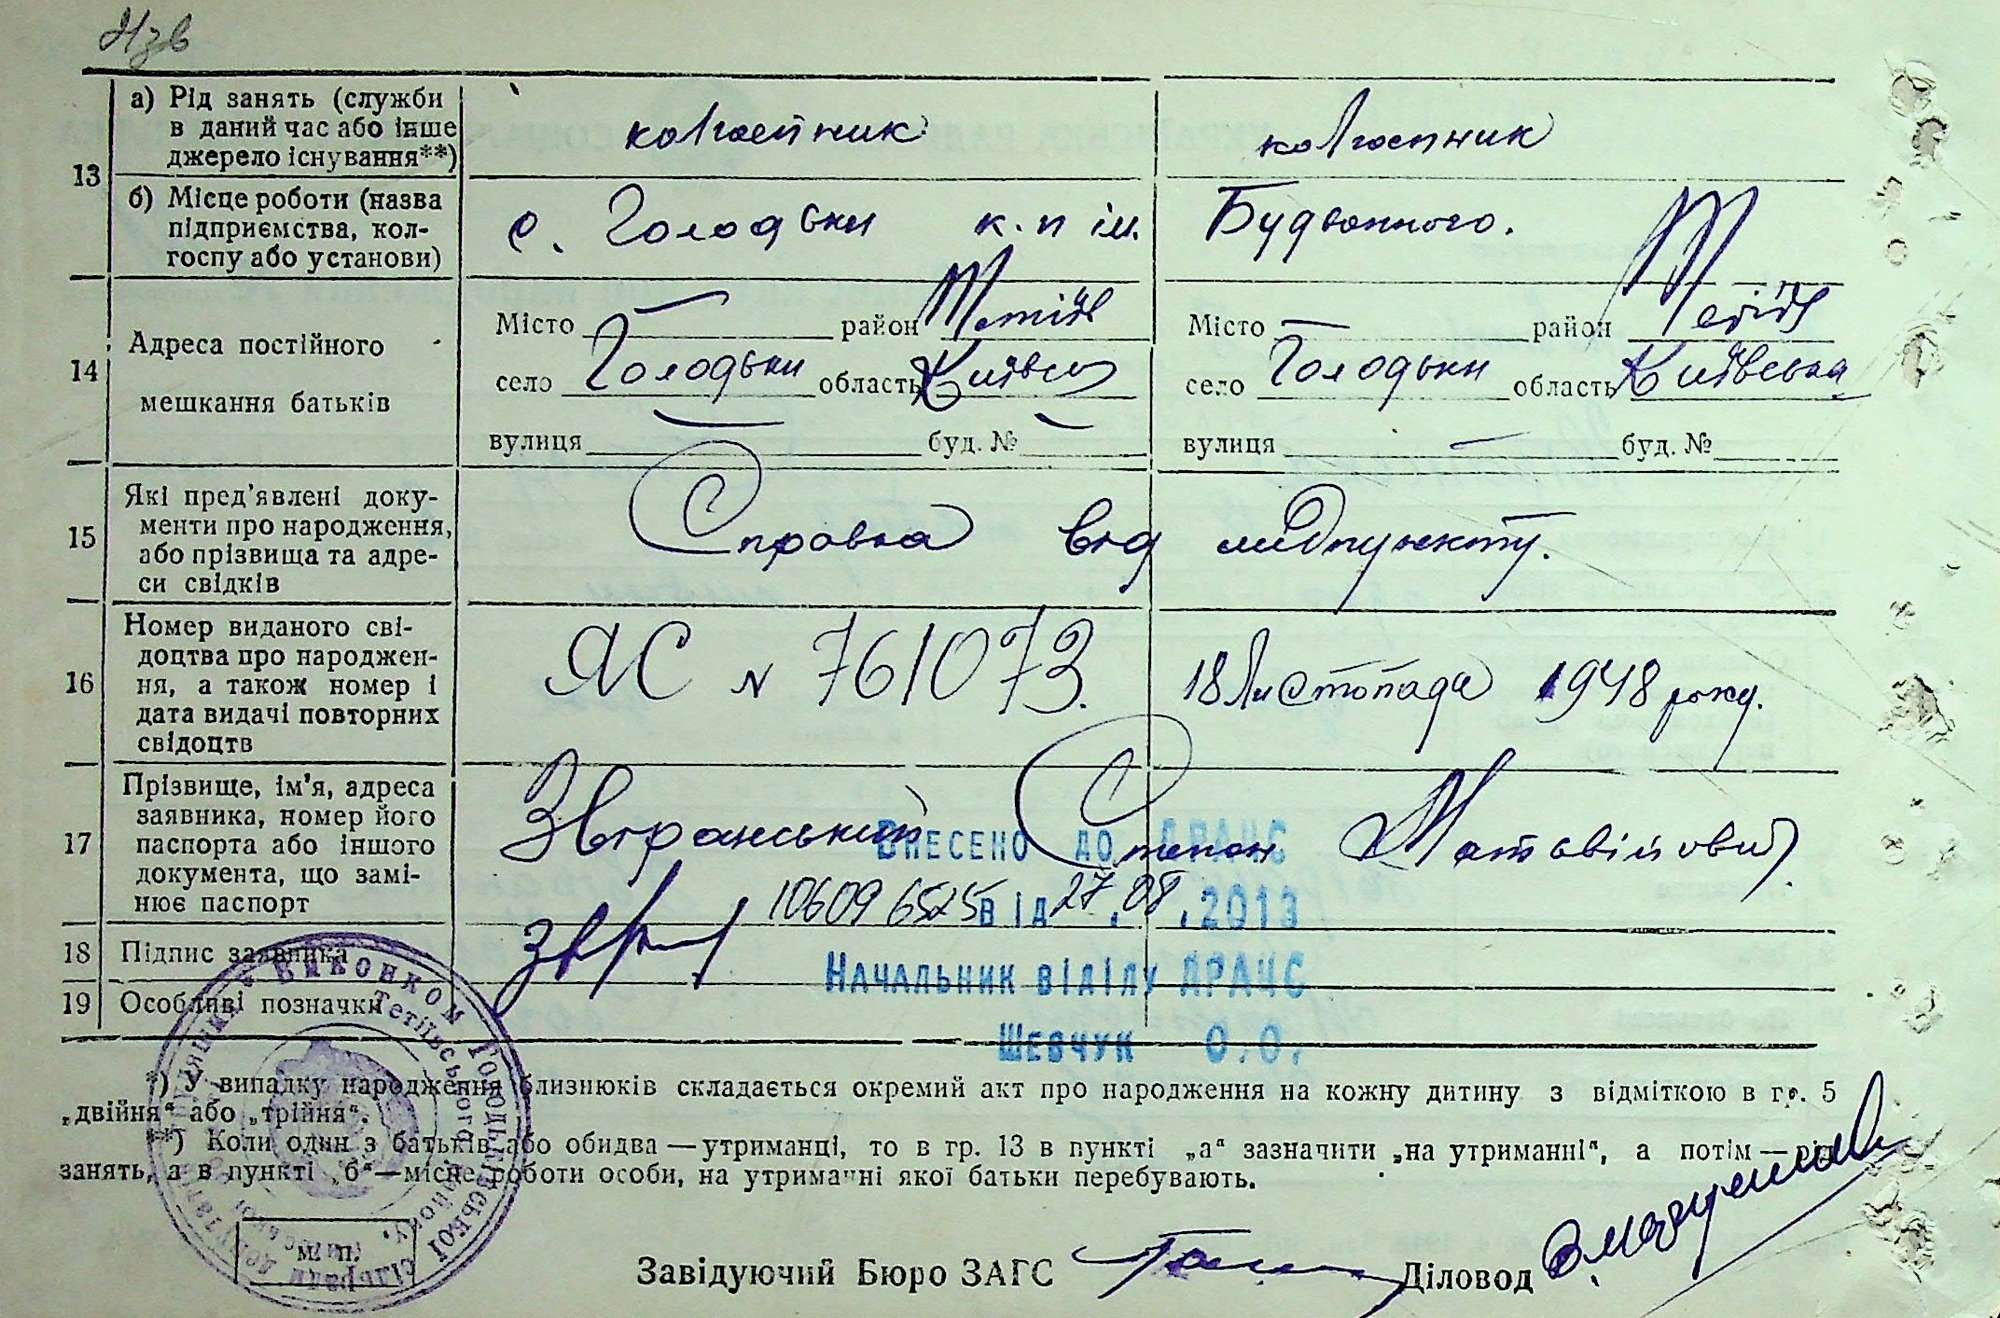 13
а) Рід занять (служби
в даний час або інше
джерело існування**)
колгоспник
колгоспник
б) Місце роботи (назва
підприємства, кол-
госпу або установи)
с. Голодьки к.п ім. Будьонного.
14
Адреса постійного
мешкання батьків
Місто — район Тетіїв
село Голодьки область Київськ
вулиця — буд. № —
Місто — район Тетіїв
село Голодьки область Київська
вулиця — буд. №
15
Які пред'явлені доку-
менти про народження,
або прізвища та адре-
си свідків
Справка від медпункту.
16
Номер виданого сві-
доцтва про народжен-
ня, а також номер і
дата видачі повторних
свідоцтв
ЯС N 761073. 18 Листопада 1948 року.
17
Прізвище, ім'я, адреса
заявника, номер його
паспорта або іншого
документа, що замі-
нює паспорт
Звіранський Степан Матвійович
Внесено до ДРАЧС
10609 6525 від 27.08.2013
Начальник віділу ДРАЧС
Шевчук О.О.
18 Підпис заявника
19 Особливі позначки
*) У випадку народження близнюків складається окремий акт про народження на кожну дитину з відміткою в гр. 5
„двійня“ або „трійня“.
**) Коли один з батьків або обидва — утриманці, то в гр. 13 в пункті „а“ зазначити „на утриманні“, а потім — рід
занять, а в пункті „б“ — місце роботи особи, на утриманні якої батьки перебувають.
м. п.
Завідуючий Бюро ЗАГС
Діловод
Виконком Голодьківської сільради
Тетіївського району,